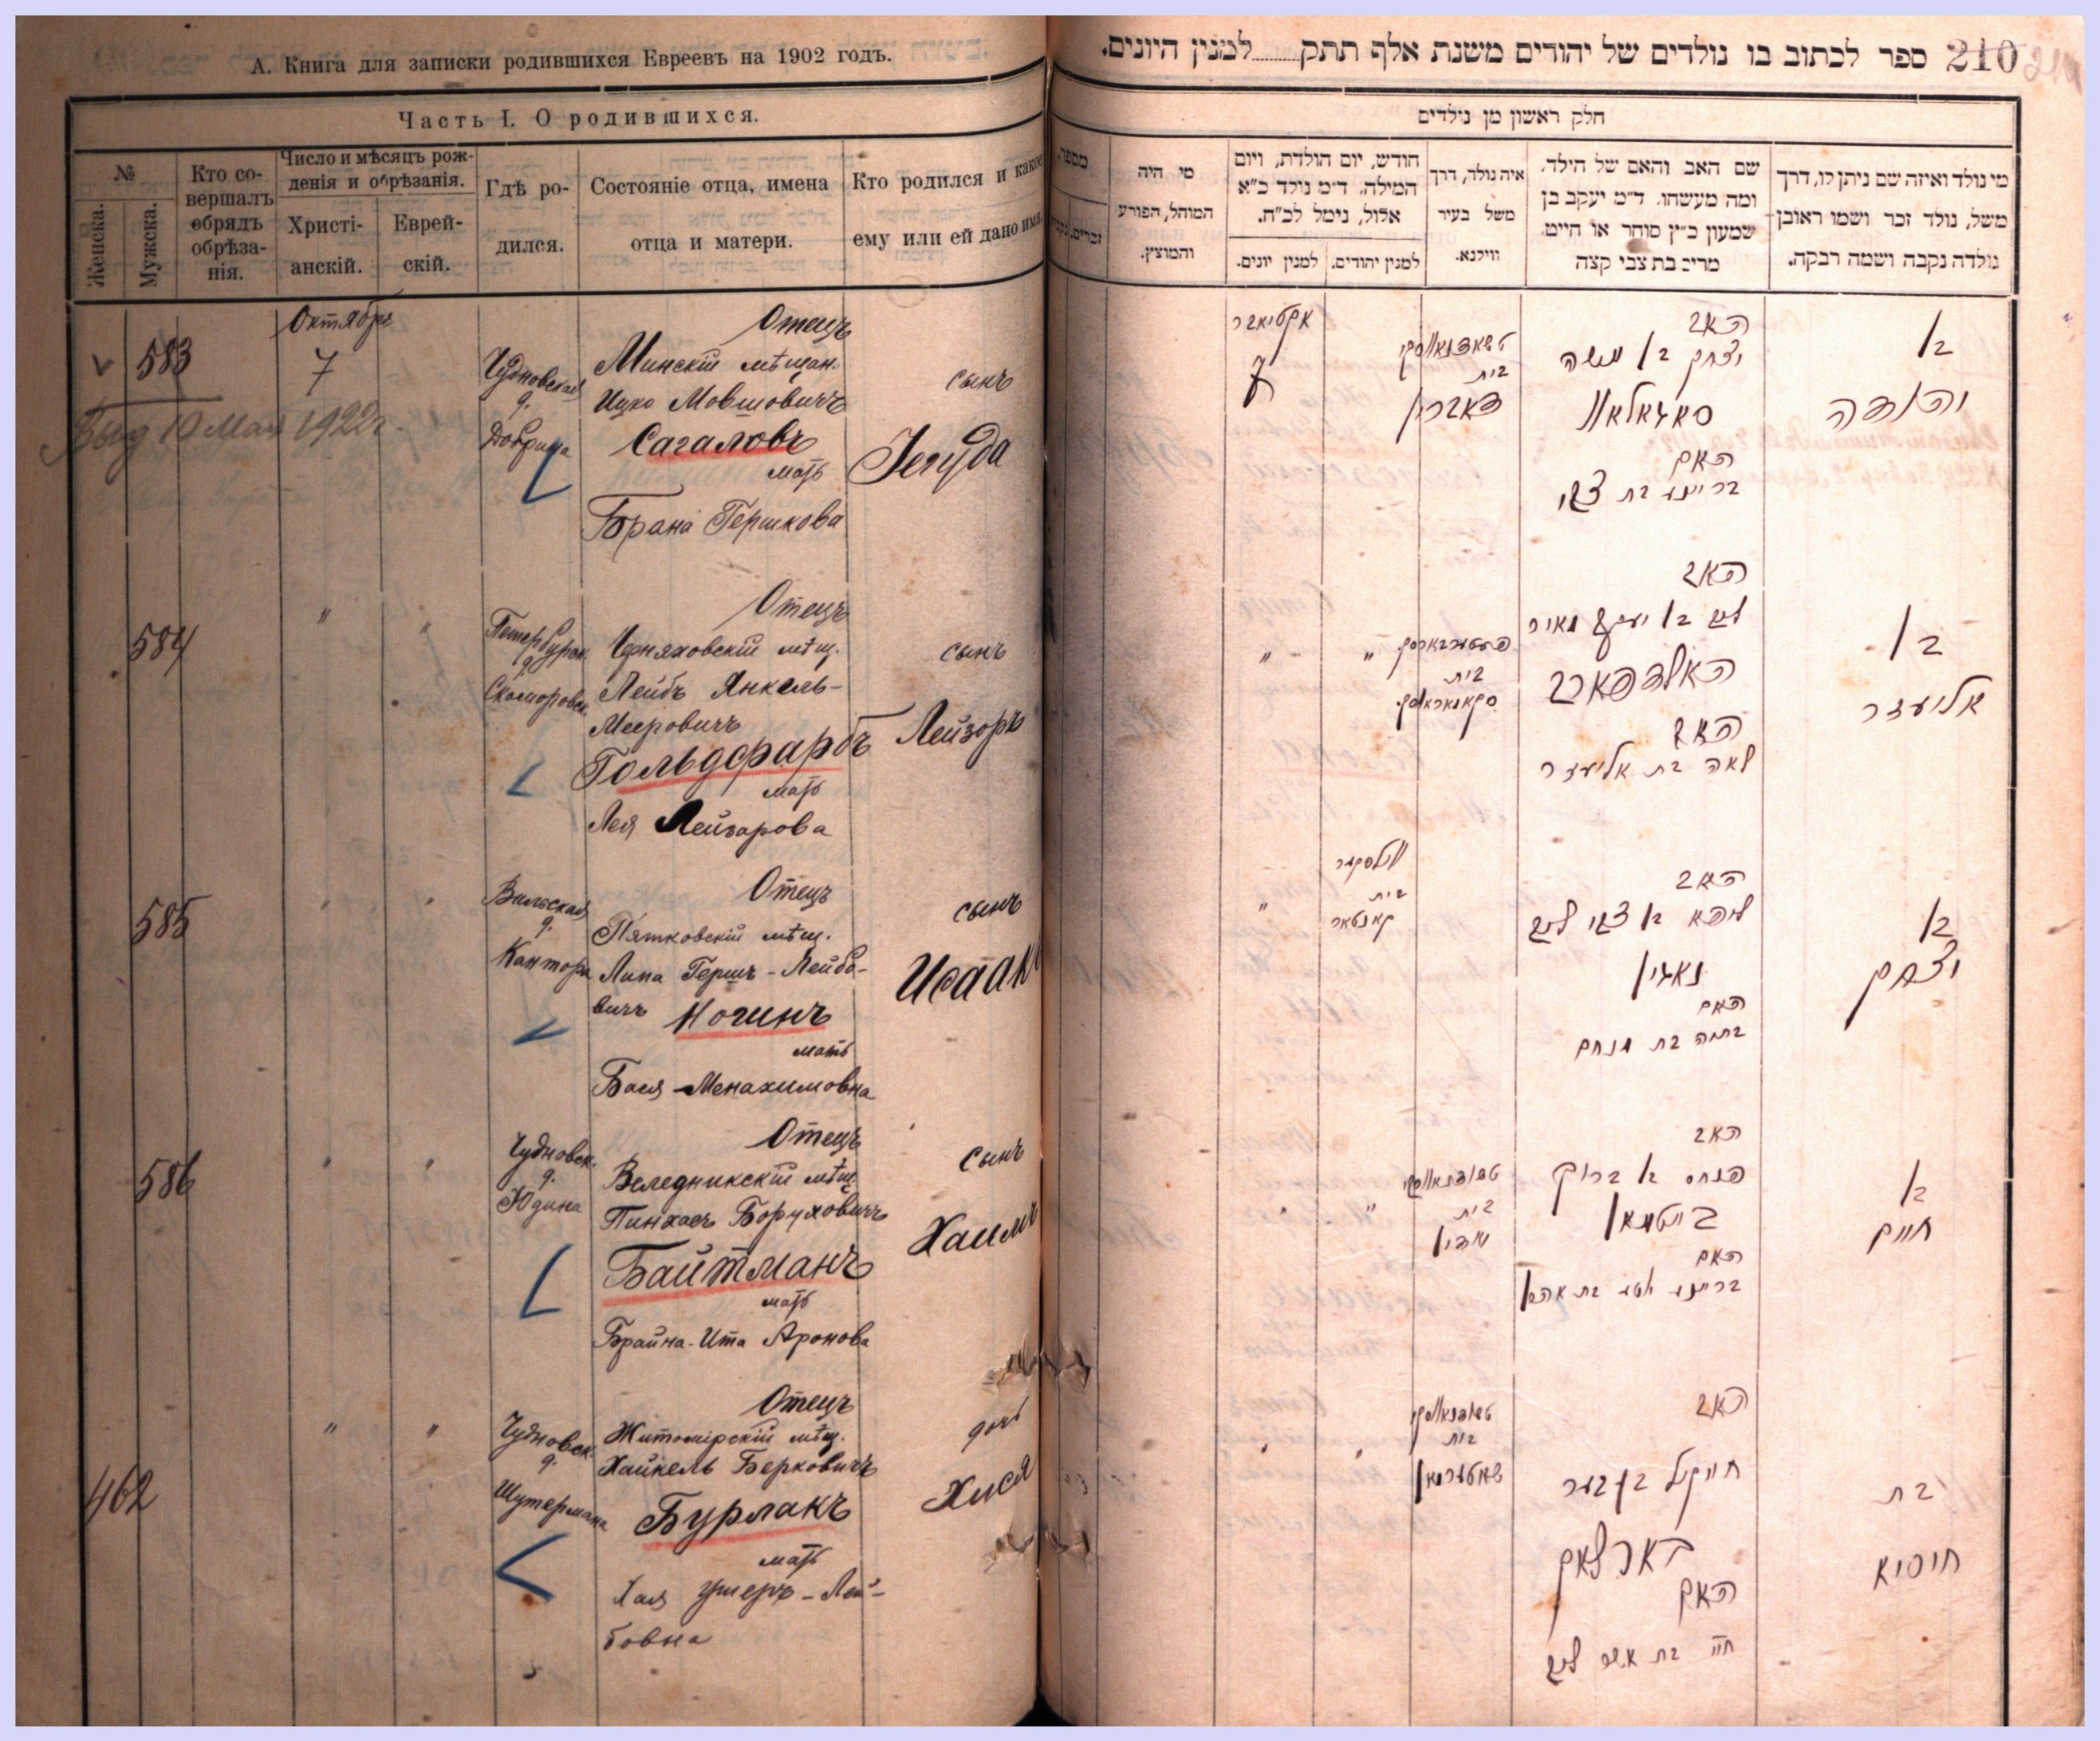 А. Книга для записки родившихся Евреевъ на 1902 годъ.
Часть I. О родившихся.
№
Женска.
Мужска.
Кто со-
вершалъ
обрядъ
обрѣза-
нія.
Число и мѣсяцъ рож-
денія и обрѣзанія.
Христі-
анскій.
Еврей-
скій.
Гдѣ ро-
дился.
Состояніе отца, имена
отца и матери.
Кто родился и какое
ему или ей дано имя.
583
Октябрь
7
Выд 10 Мая 1922 г.
Чудновская
д.
Добрина
Отецъ
Минскій мѣщан.
Ицко Мовшовичъ
Сагаловъ
мать
Брана Гершкова
сынъ
Іегуда
584
"
"
Петербургск.
д.
Скоморовск.
Отецъ
Черняховскій мѣщ.
Лейбъ Янкель-
Мееровичъ
Гольдфарбъ
мать
Лея Лейзарова
сынъ
Лейзоръ
585
"
"
Вильская
д.
Кантора
Отецъ
Пятковскій мѣщ.
Липа Гершъ-Лейбо-
вичъ Ногинъ
мать
Бася-Менахимовна
сынъ
Исаакъ
586
"
"
Чудновск.
д.
Юдина
Отецъ
Веледникскій мѣщ.
Пинхасъ Боруховичъ
Байтманъ
мать
Брайна-Ита Аронова
сынъ
Хаимъ
462
"
"
Чудновск.
д.
Шутермана
Отецъ
Житомірскій мѣщ.
Хайкель Берковичъ
Бурлакъ
мать
Хая Ушеръ-Лей-
бовна
дочь
Хися
210 ספר לכתוב בו נולדים של יהודים משנת אלף תתק......למנין היונים.
חלק ראשון מן נילדים
מי נולד ואיזה שם ניתן לו, דרך
משל, נולד זכר ושמו ראובן
נולדה נקבה ושמה רבקה.
שם האב והאם של הילד,
ומה מעשהו. ד״מ יעקב בן
שמעון כ״ץ סוחר או חייט,
מרים בת צבי קצה
איה נולד, דרך
משל בעיר
ווילנא.
חודש, יום הולדת, ויום
המילה. ד״מ נילד כ״א
אלול, נימל לכ״ח.
למנין יהודים.
למנין יונים.
מי היה
המוהל, הפורע
והמוצץ.
מספר
זכרים
בן
יהודה
האב
יצחק בן משה
סאגאלאוו
האם
בריינע בת צבי
בית
אקטיאבר
7
בן
אליעזר
האב
ליב בן יעקב מאיר
האלדפארב
האם
לאה בת אליעזר
בית
"
"
בן
יצחק
האב
ליפא בן צבי ליב
נאגין
האם
בתיה בת מנחם
ווילסקער
בית
קאנטאר
"
בן
חיים
האב
פנחס בן ברוך
בייטמאן
האם
בריינע איטע בת אהרן
בית
יודין
"
"
בת
חיסיא
האב
חייקיל בן בער
בארלאק
האם
חיי בת אשר ליב
בית
שאטערמאן
"
"